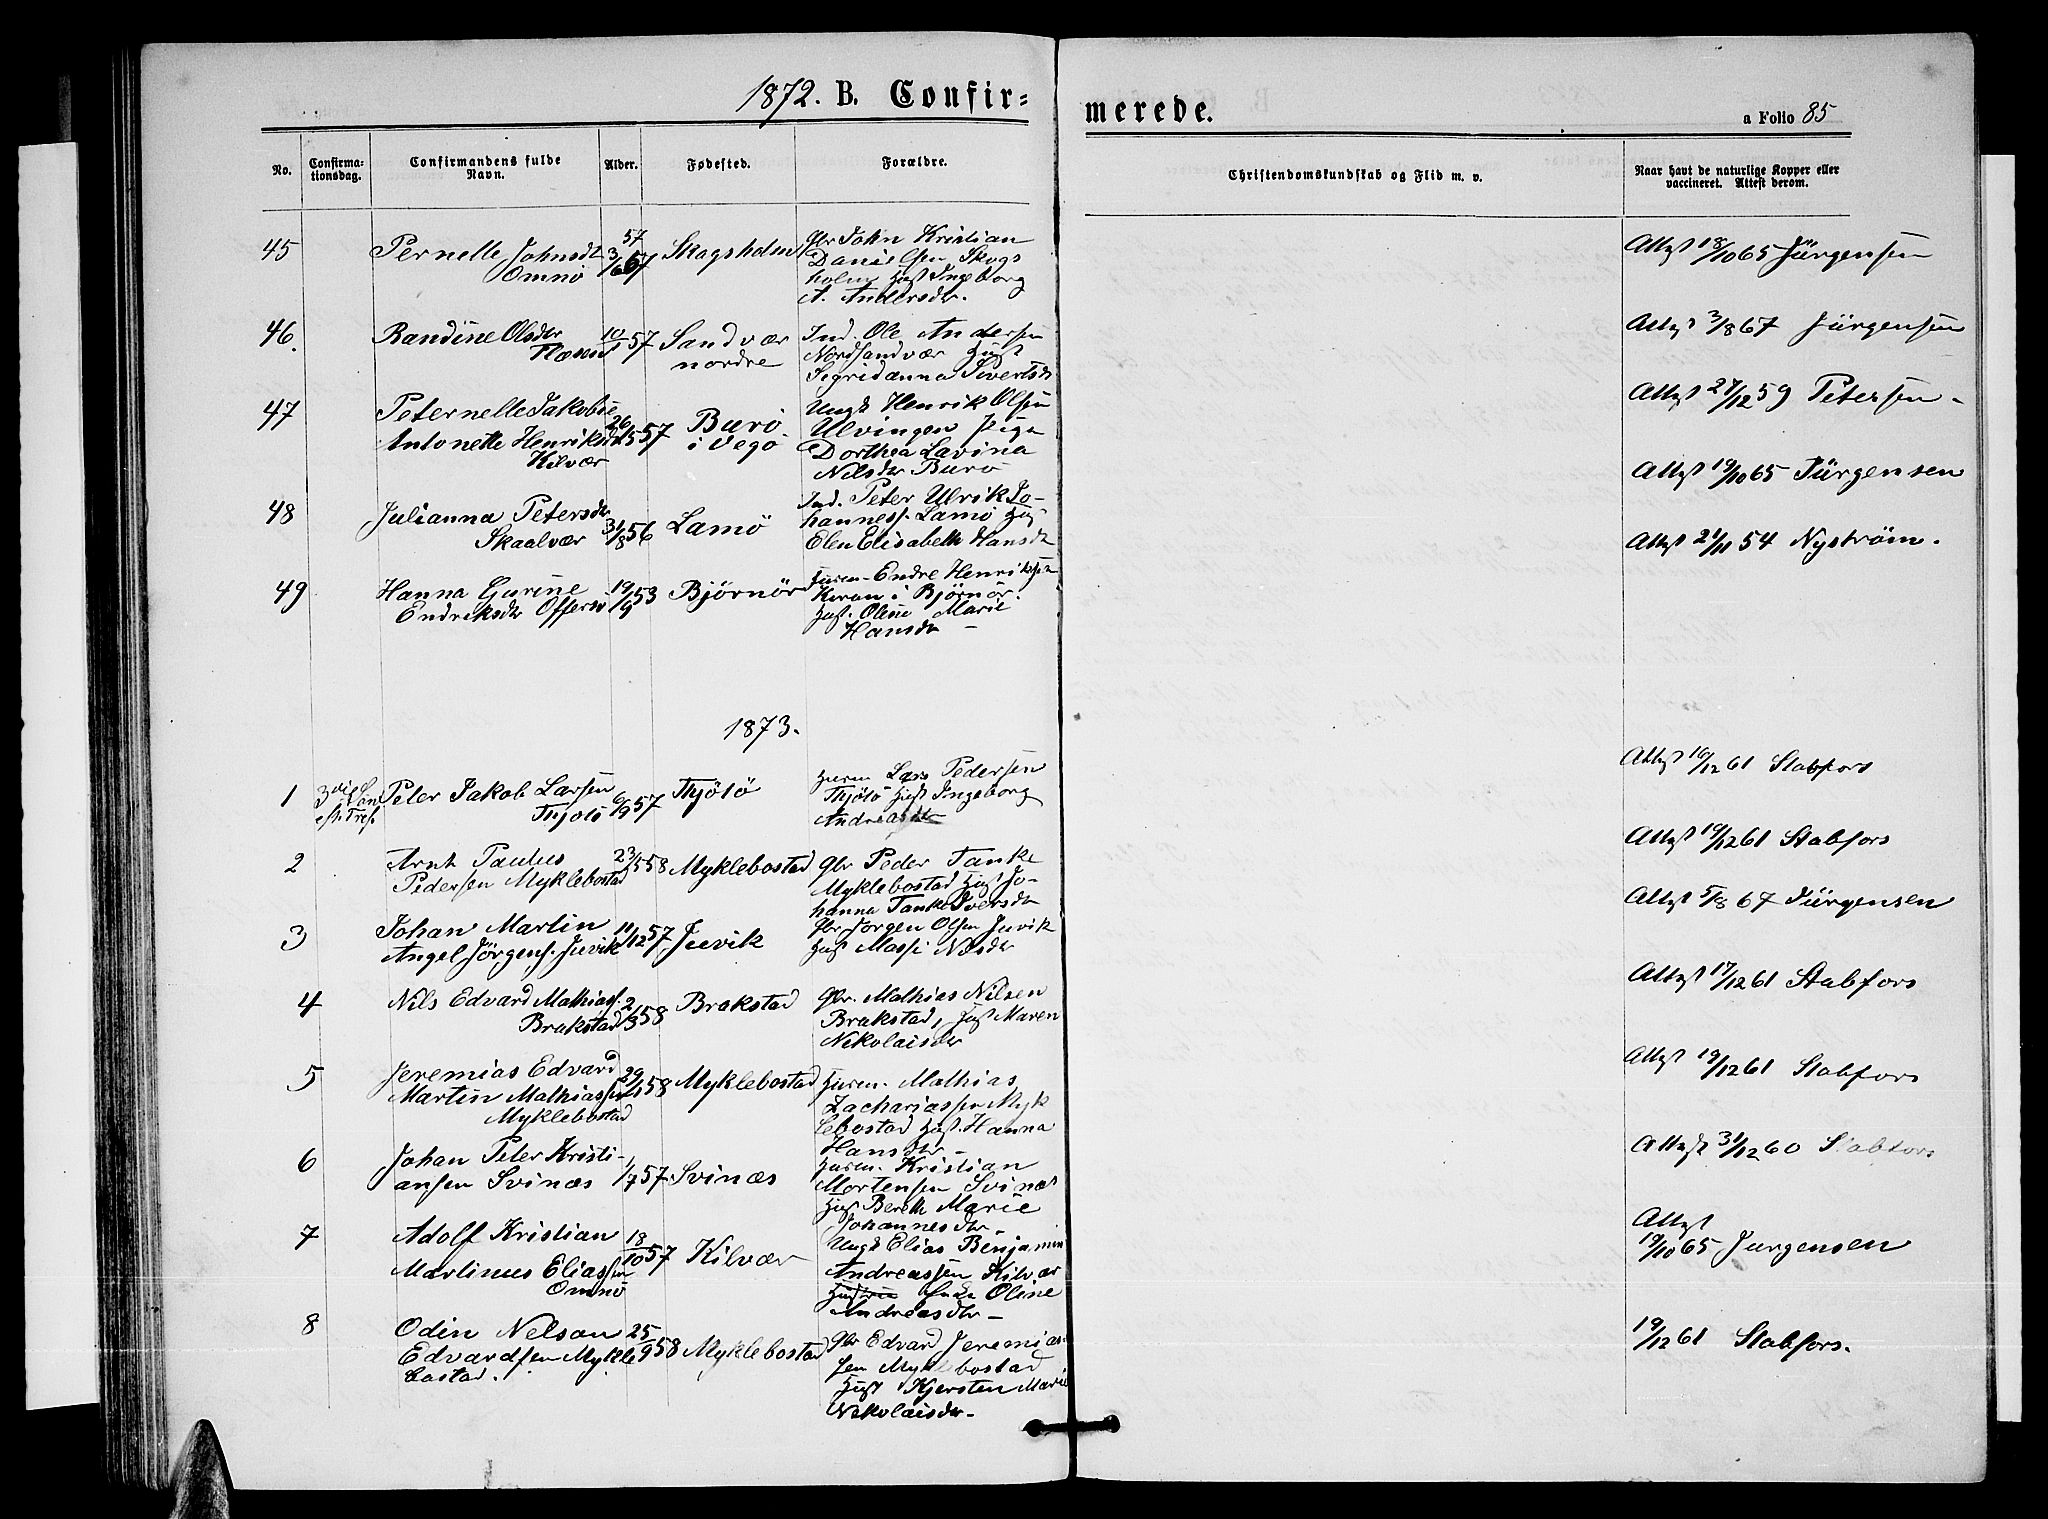 1872. B. Confir=
merede.
a Folio 85
No.
Confirma-
tionsdag.
Confirmandens fulde
Navn.
Alder.
Fødested.
Forældre.
Christendomskundskab og Flid m. v.
Naar havt de naturlige Kopper eller
vaccineret. Attest derom.
45
Pernelle Johnsdt
Omnö
57
3/6
Skogsholm
Gbr John Kristian
Danielsen Skogs
holm Hust Ingeborg
A. Andersdr.
Attest 18/10 65 Jürgensen
46.
Randine Olsdtr
10/1 57
Sandvær
nordre
Ind. Ole Andersen
Nordsandvær Hust
Sigridanna Sivertsdr
Attest 3/8 67 Jürgensen
47
Peternelle Jakobie
Antonette Henriksd
Kilvær
26/5 57
Burö
i Vegö
Ungk Henrik Olsen
Ulvingen Pige
Dorthea Lavina
Nilsdtr Burö
Attest 27/12 59 Petersen -
48
Julianna Petersdtr
Skaalvær
31/8 56
Lamö
Ind. Peter Ulrik Jo-
hanness. Lamö Hust
Elen Elisabeth Hansdtr
Attest 19/10 65 Jürgensen
49
Hanna Gurine
Endriksdtr Offersö
19/9 53
Bjørnör
Husm. Endre Henriksen
i Bjørnör.
Hust. Oline Marie
Hansdtr -
Attest 21/11 54 Nyström.
1873.
1
3die S
eft. Tref.
Peter Jakob Larsen
Thjötö
6/9 57
Thjötö
Husm Lars Pedersen
Thjötö Hust Ingeborg
Andreasdtr
Attest 16/12 61 Stabfors
2
Arnt Paulus
Pedersen Myklebostad
23/5 58
Myklebostad
Gbr Peder Tanke
Myklebostad Hust Jo-
hanna Tanke Iversdtr
Attest 19/12 61 Stabfors
3
Johan Martin
Angel Jörgens. Juvik
11/12 57
Juvik
Gbr Jörgen Olsen Juvik
Hust Massi Nilsdtr
Attest 5/8 67 Jürgensen
4
Nils Edvard Mathiass.
Brakstad
2/3 58
Brakstad
Gbr. Mathias Nilsen
Brakstad, Hust Maren
Nikolaisdtr
Attest 17/12 61 Stabfors
5
Jeremias Edvard
Martin Mathiassen
Myklebostad
29/1 58
Myklebostad
Husm. Mathias
Zachariassen Myk
lebostad Hust. Hanna
Hansdtr -
Attest 19/12 61 Stabfors
6
Johan Peter Kristi-
ansen Svinæs
1/7 57
Svinæs
Husm. Kristian
Mortensen Svinæs
Hust Bereth Marie
Johannesdtr -
Attest 31/12 60 Stabfors
7
Adolf Kristian
Martinus Eliassen
Omnö
18/10 57
Kilvær
Ungk Elias Benjamin
Andreassen Kilvær
Oline
Andreasdtr -
Attest
19/10 65 Jurgensen
8
Odin Nelson
Edvardsen Mykle
bostad.
25/9 58
Myklebostad
Gbr Edvard Jeremias-
sen Myklebostad
Hust Kjersten Marie
Nikolaisdtr -
19/12 61 Stabfors.